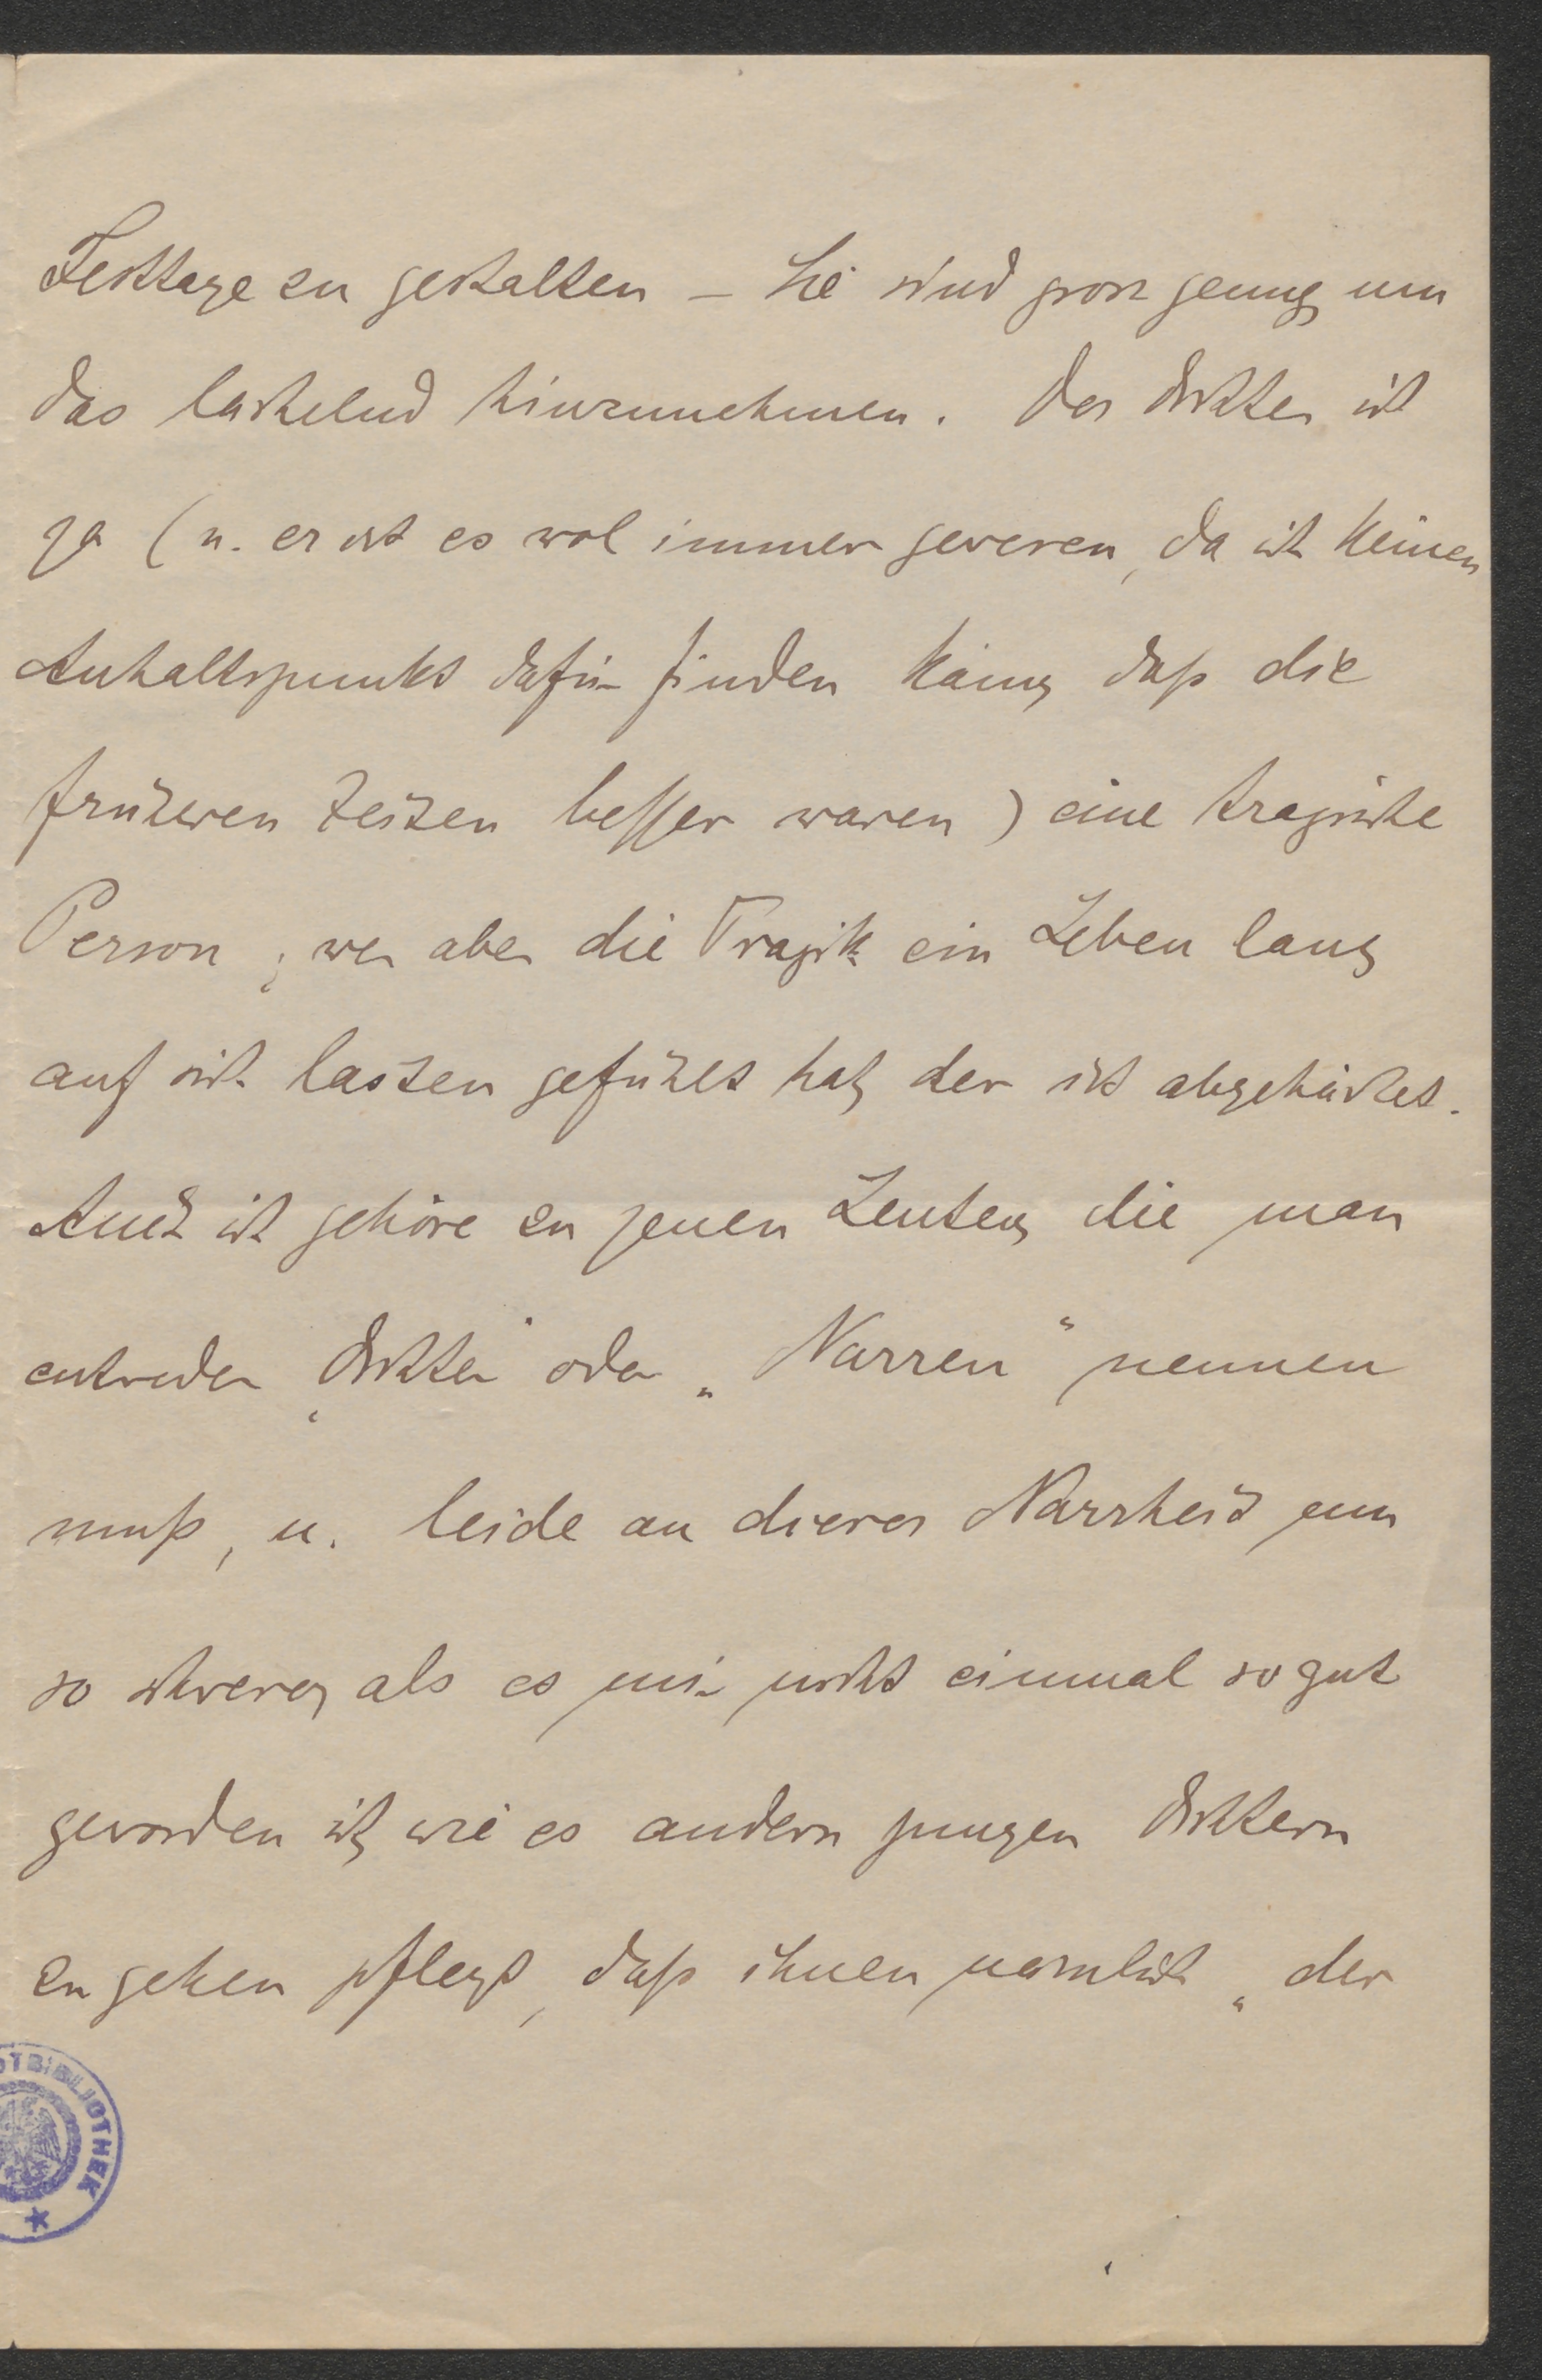 Festtage zu gestalten – Sie sind gross genug um
das lächelnd hinzunehmen. Der Dichter ist
ja (u. er ist es wol immer gewesen, da ich keinen
Anhaltspunkt dafür finden kann, daß die
früheren Zeiten besser waren) eine tragische
Person; wer aber die Tragik ein Leben lang
auf sich lasten gefühlt hat, der ist abgehärtet.
Auch ich gehöre zu jenen Leuten, die man
entweder „Dichter“ oder „Narren“ nennen
muß, u. leide an dieser Narrheit um
so schwerer, als es mir nicht einmal so gut
geworden ist, wie es andern jungen Dichtern
zu gehen pflegt, daß ihnen nämlich „der
BIBLIOTHEK